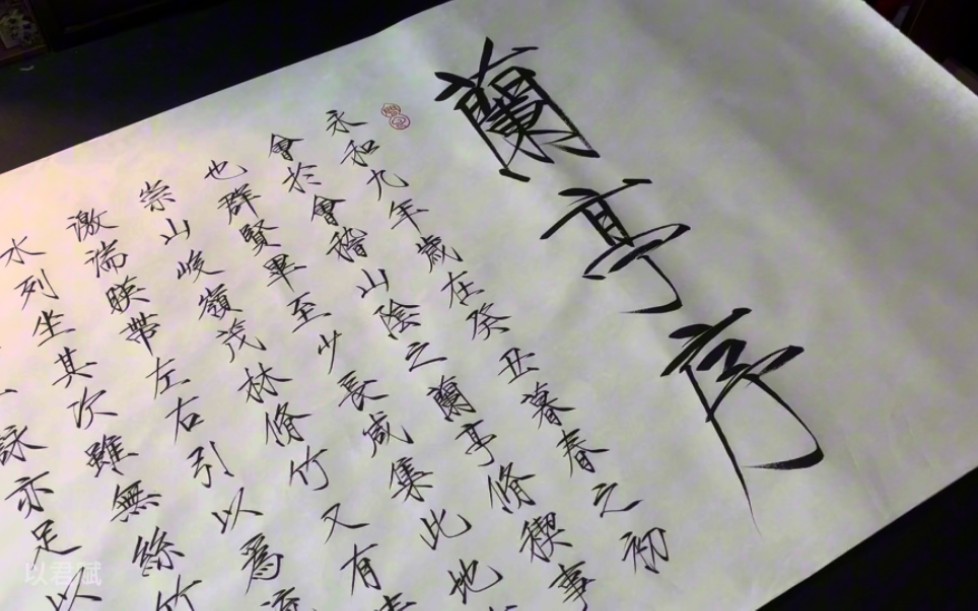 蘭亭序
永和九年歲在癸丑暮春之初
會於會稽山陰之蘭亭脩稧事
也群賢畢至少長咸集此地
崇山峻嶺茂林脩竹又有
激湍暎帶左右引以爲
水列坐其次雖無絲竹
詠亦足以
以君赋